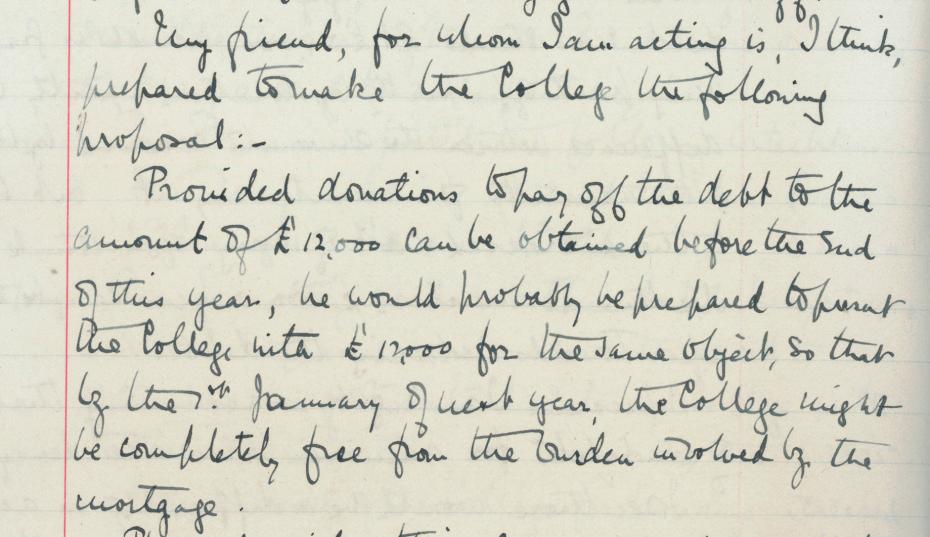 My friend, for whom I am acting is, I think,
prepared to make the College the following
proposal:-
Provided donations to pay off the debt to the
amount of £12,000 can be obtained before the end
of this year, he would probably be prepared to present
the College with £12,000 for the same object, so that
by the 1st January of next year, the College might
be completely free from the burden involved by the
mortgage.